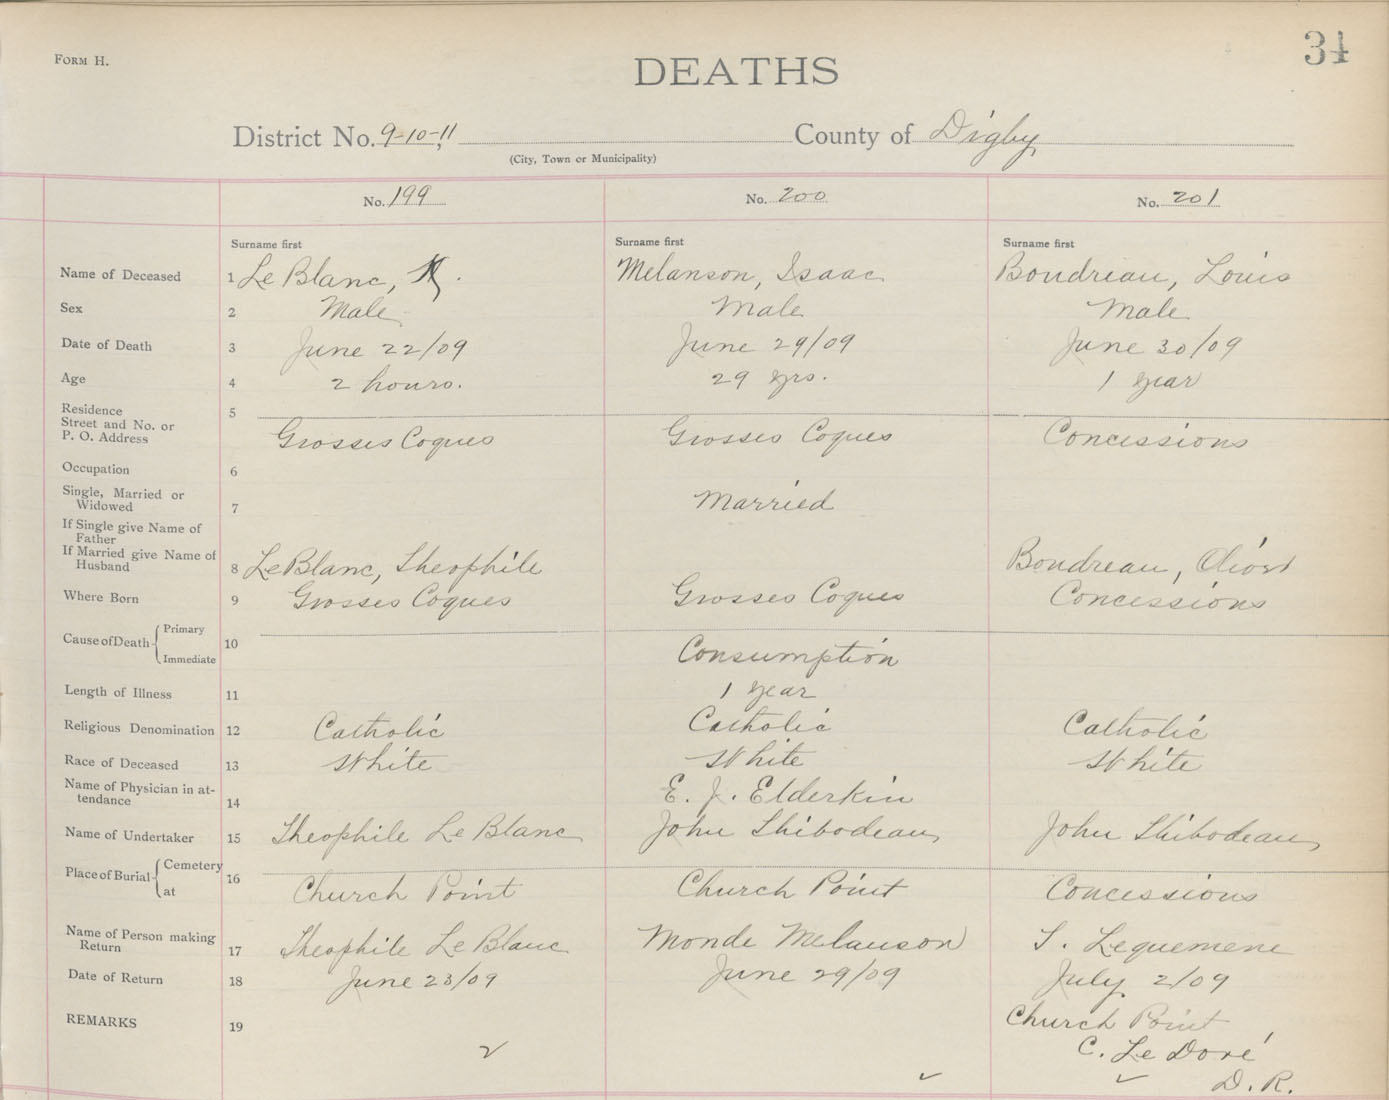 34
FORM H.
DEATHS
District No. 9-10-11, County of Digby
(City, Town or Municipality)
No. 199 No. 200 No. 201
Surname first Surname first Surname first
Name of Deceased 1 Le Blanc, Melanson, Isaac Boudreau, Louis
Sex 2 Male Male Male
Date of Death 3 June 22/09 June 29/09 June 30/09
Age 4 2 hours. 29 yrs. 1 year
Residence 5
Street and No. or
P. O. Address Grosses Coques Grosses Coques Concessions
Occupation 6
Single, Married or
Widowed 7 Married
If Single give Name of
Father
If Married give Name of
Husband 8 LeBlanc, Theophile Boudreau,
Where Born 9 Grosses Coques Grosses Coques Concessions
Cause of Death { Primary 10
Immediate Consumption
Length of Illness 11 1 year
Religious Denomination 12 Catholic Catholic Catholic
Race of Deceased 13 White White White
Name of Physician in at-
tendance 14 E. J. Elderkin
Name of Undertaker 15 Theophile Le Blanc John Thibodeau John Thibodeau
Place of Burial { Cemetery 16
at Church Point Church Point Concessions
Name of Person making
Return 17 Theophile Le Blanc Monde Melanson
Date of Return 18 June 23/09 June 29/09 July 2/09
REMARKS 19 Church Point
C. Le Doré
D. R.